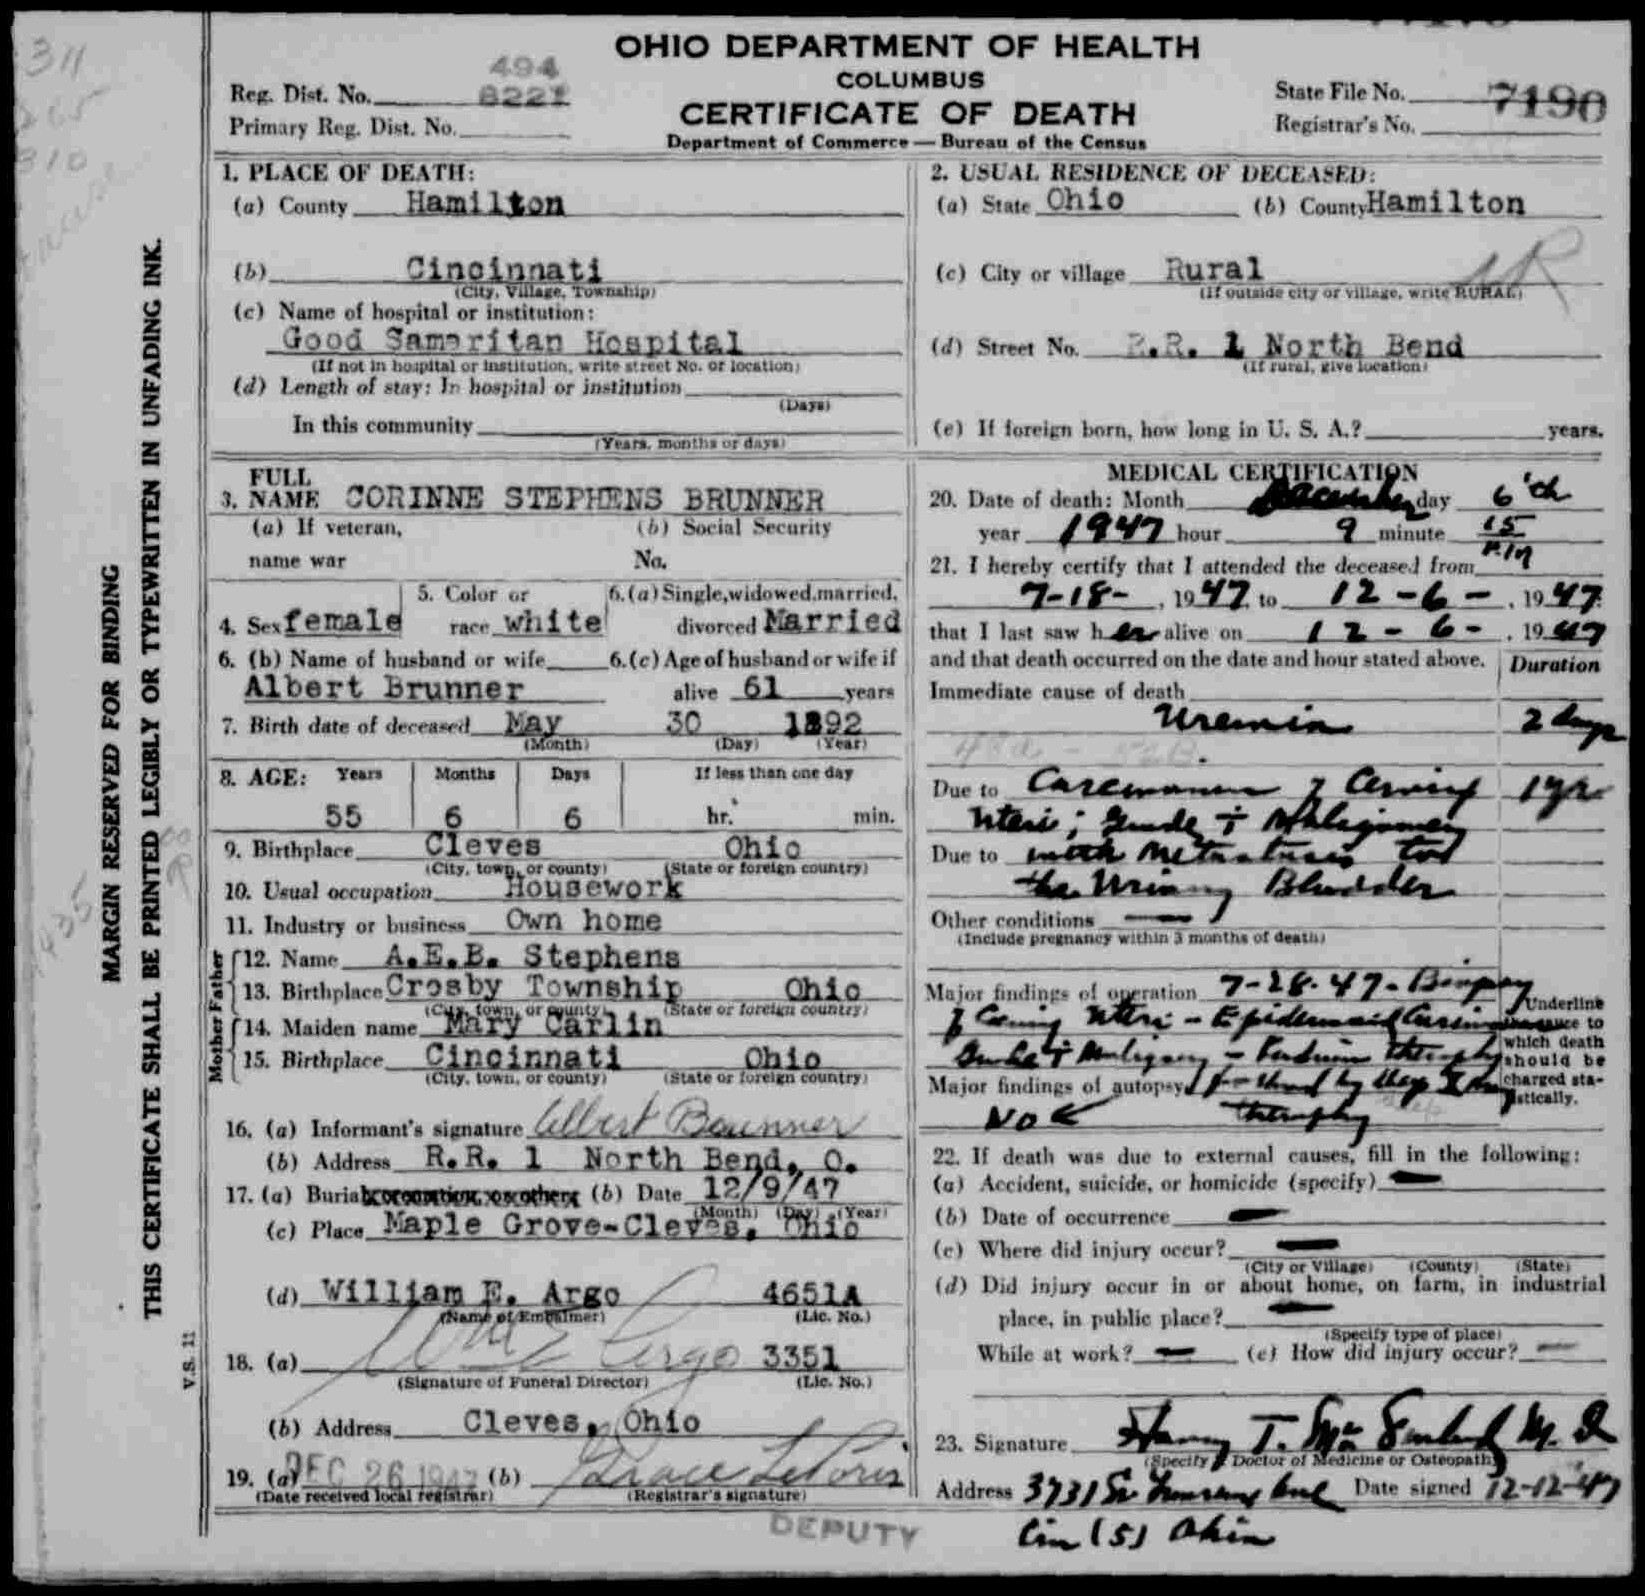 OHIO DEPARTMENT OF HEALTH
COLUMBUS
CERTIFICATE OF DEATH
Department of Commerce — Bureau of the Census
494
Reg. Dist. No. 8221
Primary Reg. Dist. No.
State File No. 7190
Registrar's No.
311
265
310
MARGIN RESERVED FOR BINDING
THIS CERTIFICATE SHALL BE PRINTED LEGIBLY OR TYPEWRITTEN IN UNFADING INK.
V.S. 11
1. PLACE OF DEATH:
(a) County Hamilton
(b) Cincinnati
(City, Village, Township)
(c) Name of hospital or institution:
Good Samaritan Hospital
(If not in hospital or institution, write street No. or location)
(d) Length of stay: In hospital or institution
(Days)
In this community
(Years, months or days)
2. USUAL RESIDENCE OF DECEASED:
(a) State Ohio (b) County Hamilton
(c) City or village Rural
(If outside city or village, write RURAL)
(d) Street No. R.R. 1 North Bend
(If rural, give location)
(e) If foreign born, how long in U. S. A.? years.
FULL
3. NAME CORINNE STEPHENS BRUNNER
(a) If veteran, (b) Social Security
name war No.
4. Sex female 5. Color or race white 6. (a) Single, widowed, married, divorced Married
6. (b) Name of husband or wife 6. (c) Age of husband or wife if
Albert Brunner alive 61 years
7. Birth date of deceased May 30 1892
(Month) (Day) (Year)
8. AGE: Years Months Days If less than one day
55 6 6 hr. min.
9. Birthplace Cleves Ohio
(City, town, or county) (State or foreign country)
10. Usual occupation Housework
11. Industry or business Own home
Father
12. Name A.E.B. Stephens
13. Birthplace Crosby Township Ohio
(City, town, or county) (State or foreign country)
Mother
14. Maiden name Mary Carlin
15. Birthplace Cincinnati Ohio
(City, town, or county) (State or foreign country)
16. (a) Informant's signature Albert Brunner
(b) Address R.R. 1 North Bend, O.
17. (a) Burial, cremation, or other (b) Date 12/9/47
(Month) (Day) (Year)
(c) Place Maple Grove-Cleves, Ohio
(d) William E. Argo 4651A
(Name of Embalmer) (Lic. No.)
18. (a) Wm E Argo 3351
(Signature of Funeral Director) (Lic. No.)
(b) Address Cleves, Ohio
19. (a) DEC 26 1947 (b) Grace
(Date received local registrar) (Registrar's signature)
DEPUTY
MEDICAL CERTIFICATION
20. Date of death: Month December day 6'th
year 1947 hour 9 minute 15 P.M
21. I hereby certify that I attended the deceased from
7-18-, 1947 to 12-6-, 1947
that I last saw her alive on 12-6-, 1947
and that death occurred on the date and hour stated above. Duration
Immediate cause of death
Uremia 2 days
Due to Carcinoma of Cervix 1 yr
Uteri; Grade Malignancy
Due to with Metastasis to
the Urinary Bladder
Other conditions —
(Include pregnancy within 3 months of death)
Major findings of operation 7-28-47- Biopsy
of Cervix Uteri - Epidermoid
Grade Malignancy -
Underline
the cause to
which death
should be
charged sta-
tistically.
Major findings of autopsy by deep X ray
No therapy
22. If death was due to external causes, fill in the following:
(a) Accident, suicide, or homicide (specify) —
(b) Date of occurrence —
(c) Where did injury occur? —
(City or Village) (County) (State)
(d) Did injury occur in or about home, on farm, in industrial
place, in public place? —
(Specify type of place)
While at work? — (e) How did injury occur? —
23. Signature T. M. D
(Specify if Doctor of Medicine or Osteopath)
Address 3731 Ave Date signed 12-12-47
Cin (5) Ohio